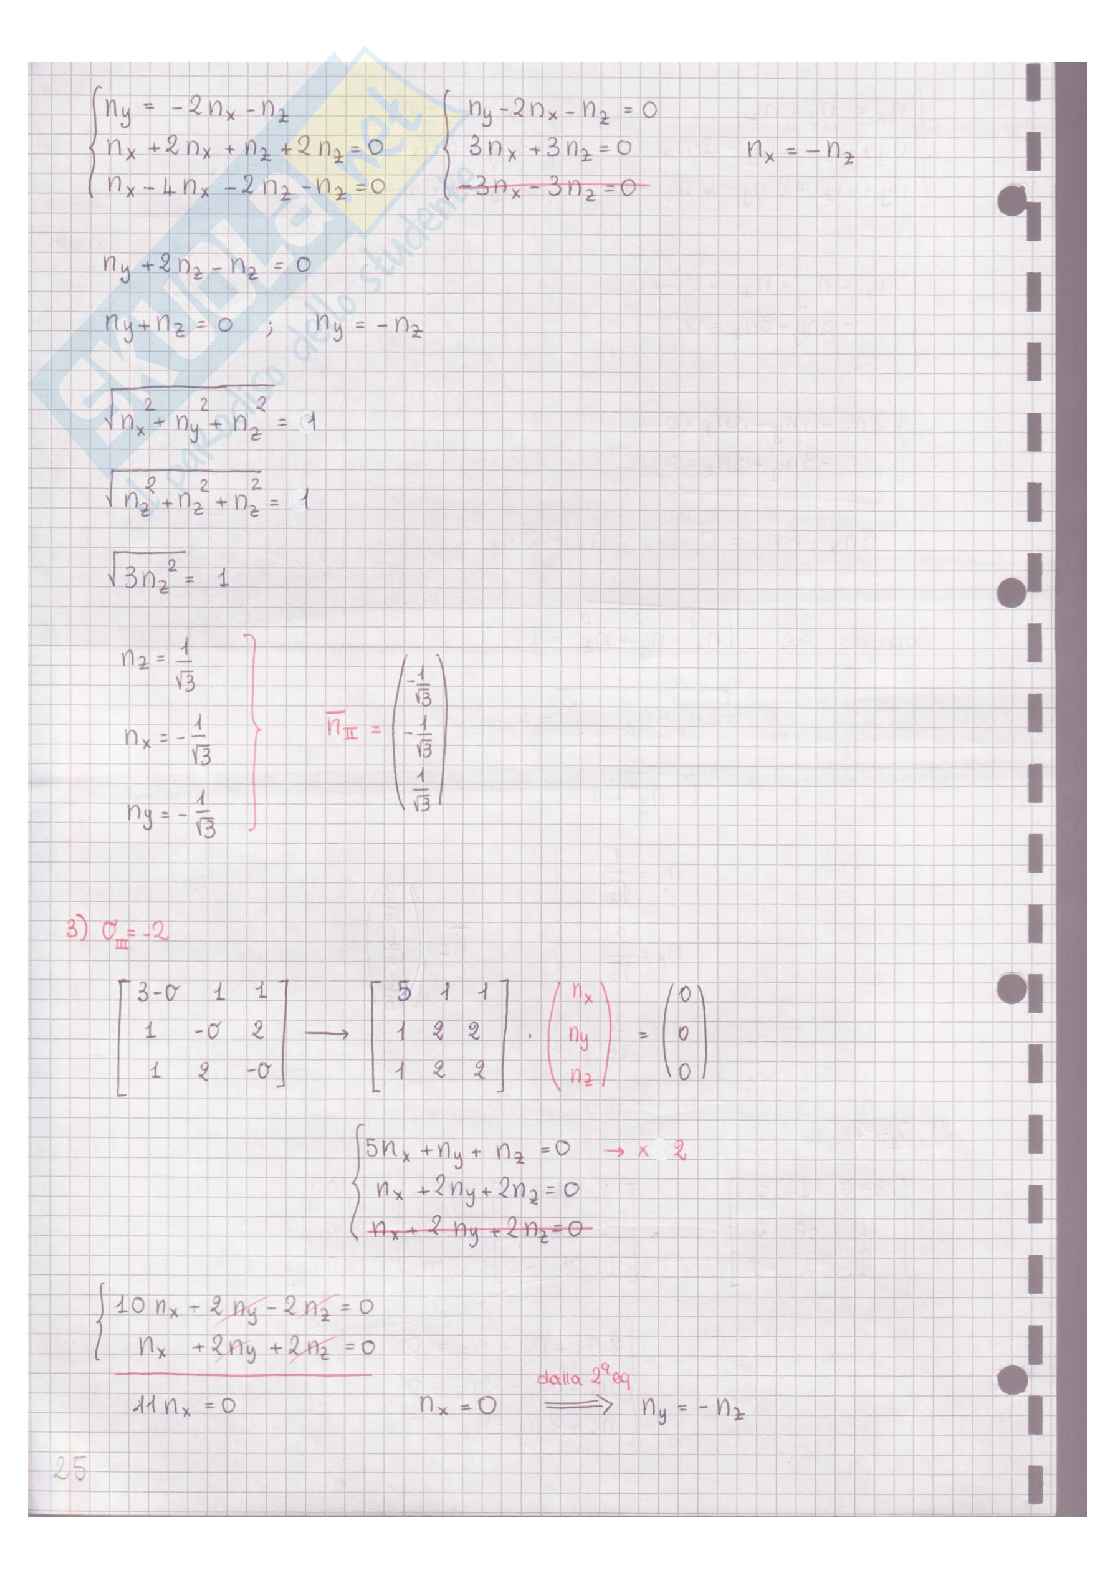 n_y = -2n_x - n_z
n_x + 2n_x + n_z + 2n_z = 0
n_x - 4n_x - 2n_z - n_z = 0
n_y - 2n_x - n_z = 0
3n_x + 3n_z = 0
-3n_x - 3n_z = 0
n_x = -n_z
n_y + 2n_z - n_z = 0
n_y + n_z = 0 ; n_y = -n_z
√(n_x² + n_y² + n_z²) = 1
√(n_z² + n_z² + n_z²) = 1
√(3n_z²) = 1
n_z = 1/√3
n_x = -1/√3
n_y = -1/√3
n̄_II = (-1/√3, -1/√3, 1/√3)
3) σ_III = -2
[3-σ 1 1
1 -σ 2
1 2 -σ]
→
[5 1 1
1 2 2
1 2 2]
· (n_x
n_y
n_z)
= (0
0
0)
5n_x + n_y + n_z = 0 → × 2
n_x + 2n_y + 2n_z = 0
n_x + 2n_y + 2n_z = 0
10n_x - 2n_y - 2n_z = 0
n_x + 2n_y + 2n_z = 0
11n_x = 0 n_x = 0 dalla 2ª eq ⟹ n_y = -n_z
25
SKUOLA.net
il paradiso dello studente